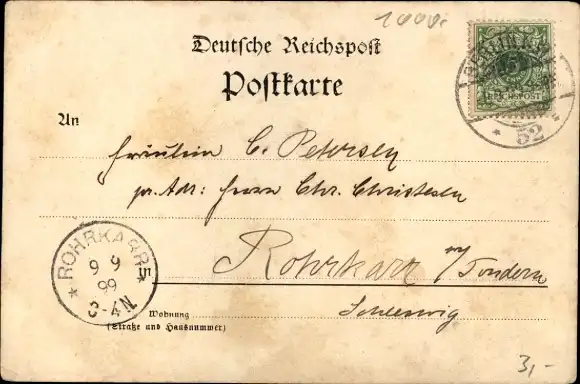 1000.
Deutsche Reichspost
Postkarte
BERLIN
5
REICHSPOST
52
An
Fräulein C. Petersen
pr. Adr: Herrn Chr. Christesen
in Rohrkarr b/Tondern
Schleswig
ROHRKARR
9 9
99
3-4N
Wohnung
(Straße und Hausnummer)
3,-